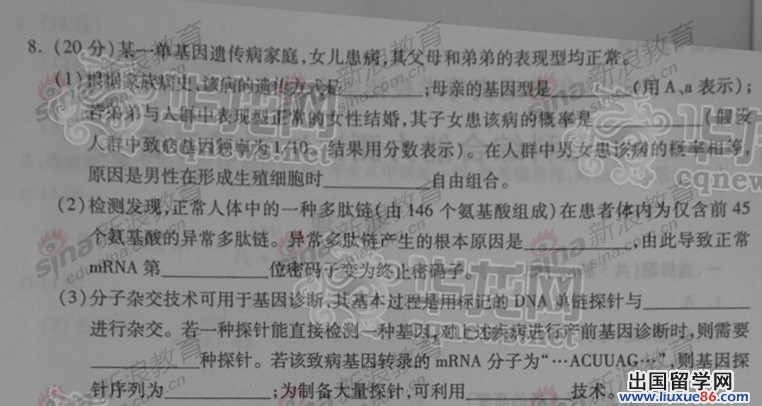 8. (20分)某一单基因遗传病家庭,女儿患病,其父母和弟弟的表现型均正常。
(1)根据家族病史,该病的遗传方式是________;母亲的基因型是________(用A、a表示);
若弟弟与人群中表现型正常的女性结婚,其子女患该病的概率是________(假设
人群中致病基因频率为1/10。结果用分数表示)。在人群中男女患该病的概率相等,
原因是男性在形成生殖细胞时________自由组合。
(2)检测发现,正常人体中的一种多肽链(由146个氨基酸组成)在患者体内为仅含前45
个氨基酸的异常多肽链。异常多肽链产生的根本原因是________,由此导致正常
mRNA第________位密码子变为终止密码子。
(3)分子杂交技术可用于基因诊断,其基本过程是用标记的DNA单链探针与________
进行杂交。若一种探针能直接检测一种基因,对上述疾病进行产前基因诊断时,则需要
________种探针。若该致病基因转录的mRNA分子为“…ACUUAG…”,则基因探
针序列为________;为制备大量探针,可利用________技术。
sina新浪教育
edu.sina.com.cn
华龙网
cqnews
出国留学网
www.liuxue86.com